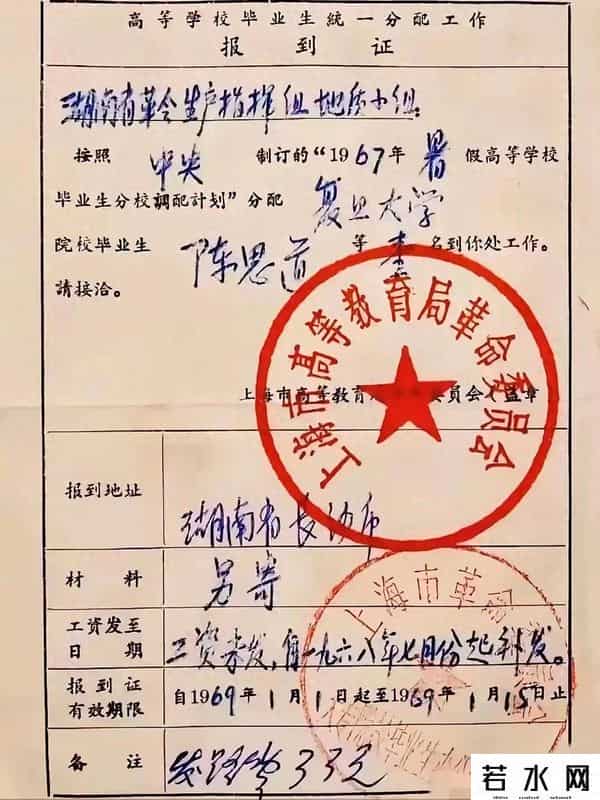 高等学校毕业生統一分配工作
报到证
湖南省革会生产指挥组地质小组:
按照 中央 制订的“1967年 暑 假高等学校
毕业生分校調配計划”分配 复旦大学
院校毕业生 陈思道 等 壹 名到你处工作。
請接洽。
上海市高等教育局革命委員会
上海市高等教育 委員会 盖章
报到地址 湖南省长沙市
材料 另寄
上海市革命
工資发至日期 工资未发,自一九六八年七月份起补发。
报到证有效期限 自1969年1月1日起至1969年1月15日止
备注 发路费33元
若水网